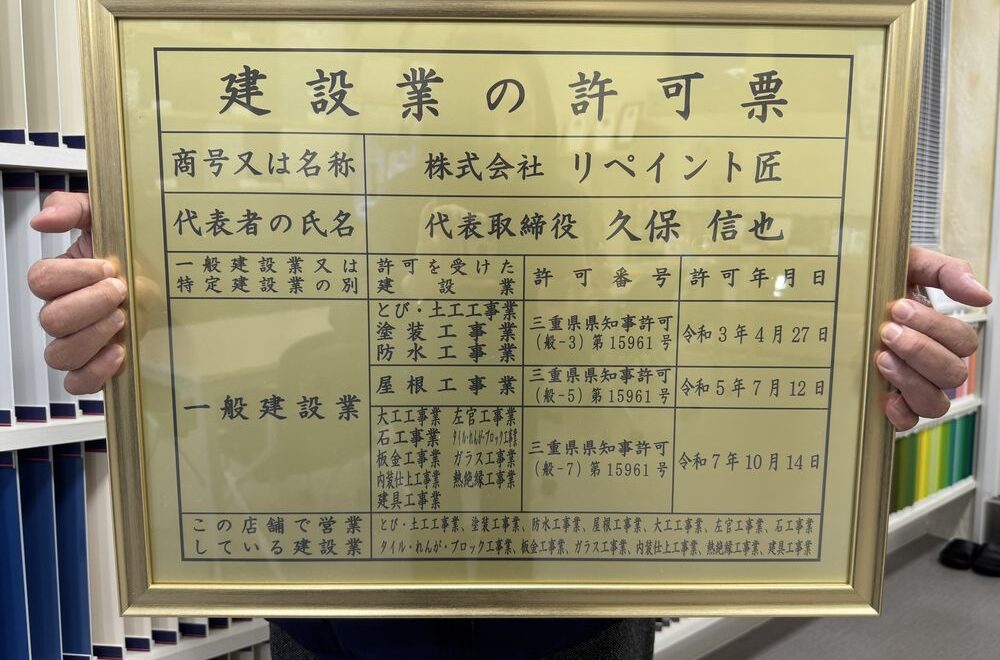 建設業の許可票
商号又は名称
株式会社 リペイント匠
代表者の氏名
代表取締役 久保 信也
一般建設業又は
特定建設業の別
許可を受けた
建設業
許可番号
許可年月日
一般建設業
とび・土工工事業
塗装工事業
防水工事業
三重県県知事許可
(般-3)第15961号
令和3年4月27日
屋根工事業
三重県県知事許可
(般-5)第15961号
令和5年7月12日
大工工事業 左官工事業
石工事業 タイル・れんが・ブロック工事業
板金工事業 ガラス工事業
内装仕上工事業 熱絶縁工事業
建具工事業
三重県県知事許可
(般-7)第15961号
令和7年10月14日
この店舗で営業
している建設業
とび・土工工事業、塗装工事業、防水工事業、屋根工事業、大工工事業、左官工事業、石工事業
タイル・れんが・ブロック工事業、板金工事業、ガラス工事業、内装仕上工事業、熱絶縁工事業、建具工事業